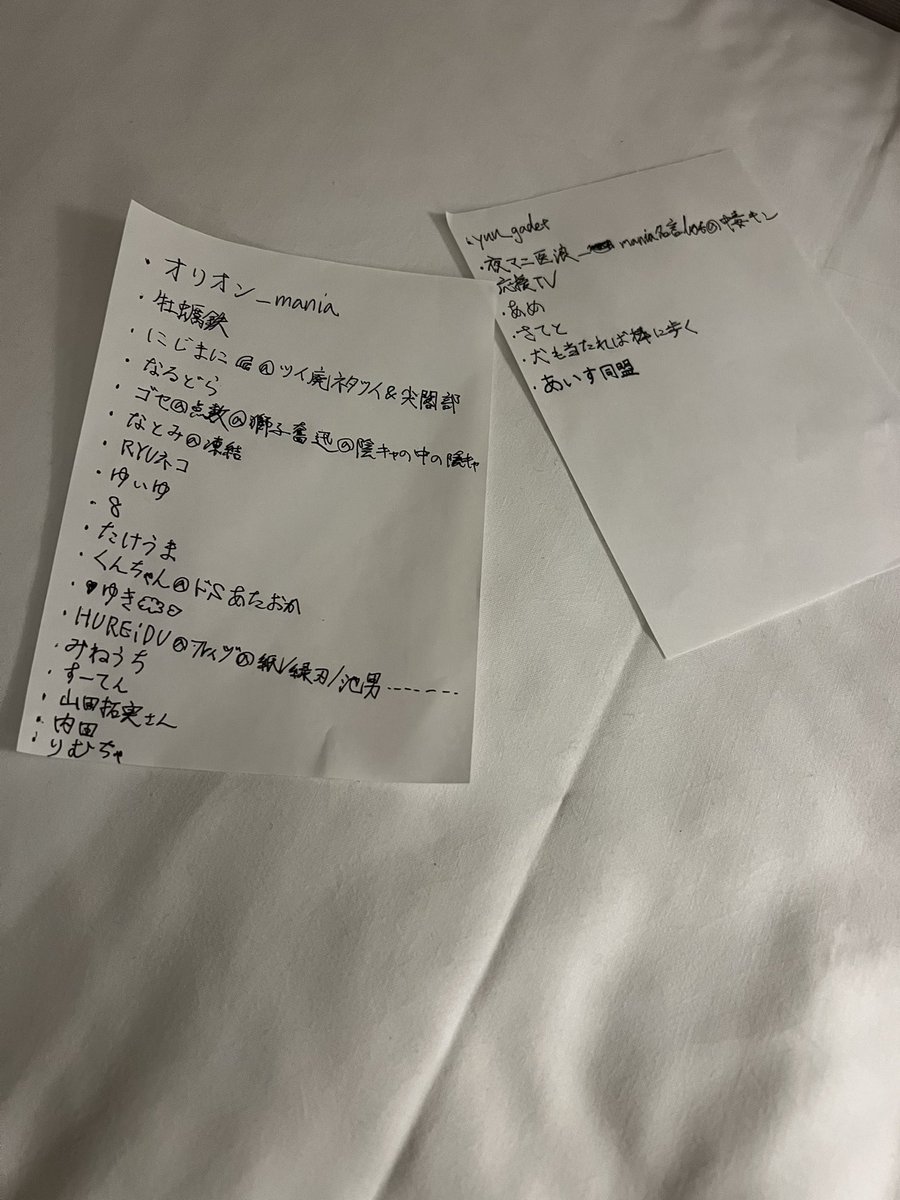 ・オリオン_mania
・牡蠣鉄
・にじまに @ツイ廃ネタツイ&尖閣部
・なるどら
・ゴセ@点数@獅子奮迅@陰キャの中の陰キャ
・なとみ@凍結
・RYUネコ
・ゆぃゆ
・8
・たけうま
・くんちゃん@ドSあたおか
・♥ゆき
・HUREiDU@フレイヅ@紙/緑刃/池男-------
・みねうち
・すーてん
・山田拓実さん
・内田
・りむちゃ
・yun_gadet
・夜マニ医波_ mania名言
応援TV
・あめ
・さてと
・犬も当たれば棒に歩く
・あいす同盟